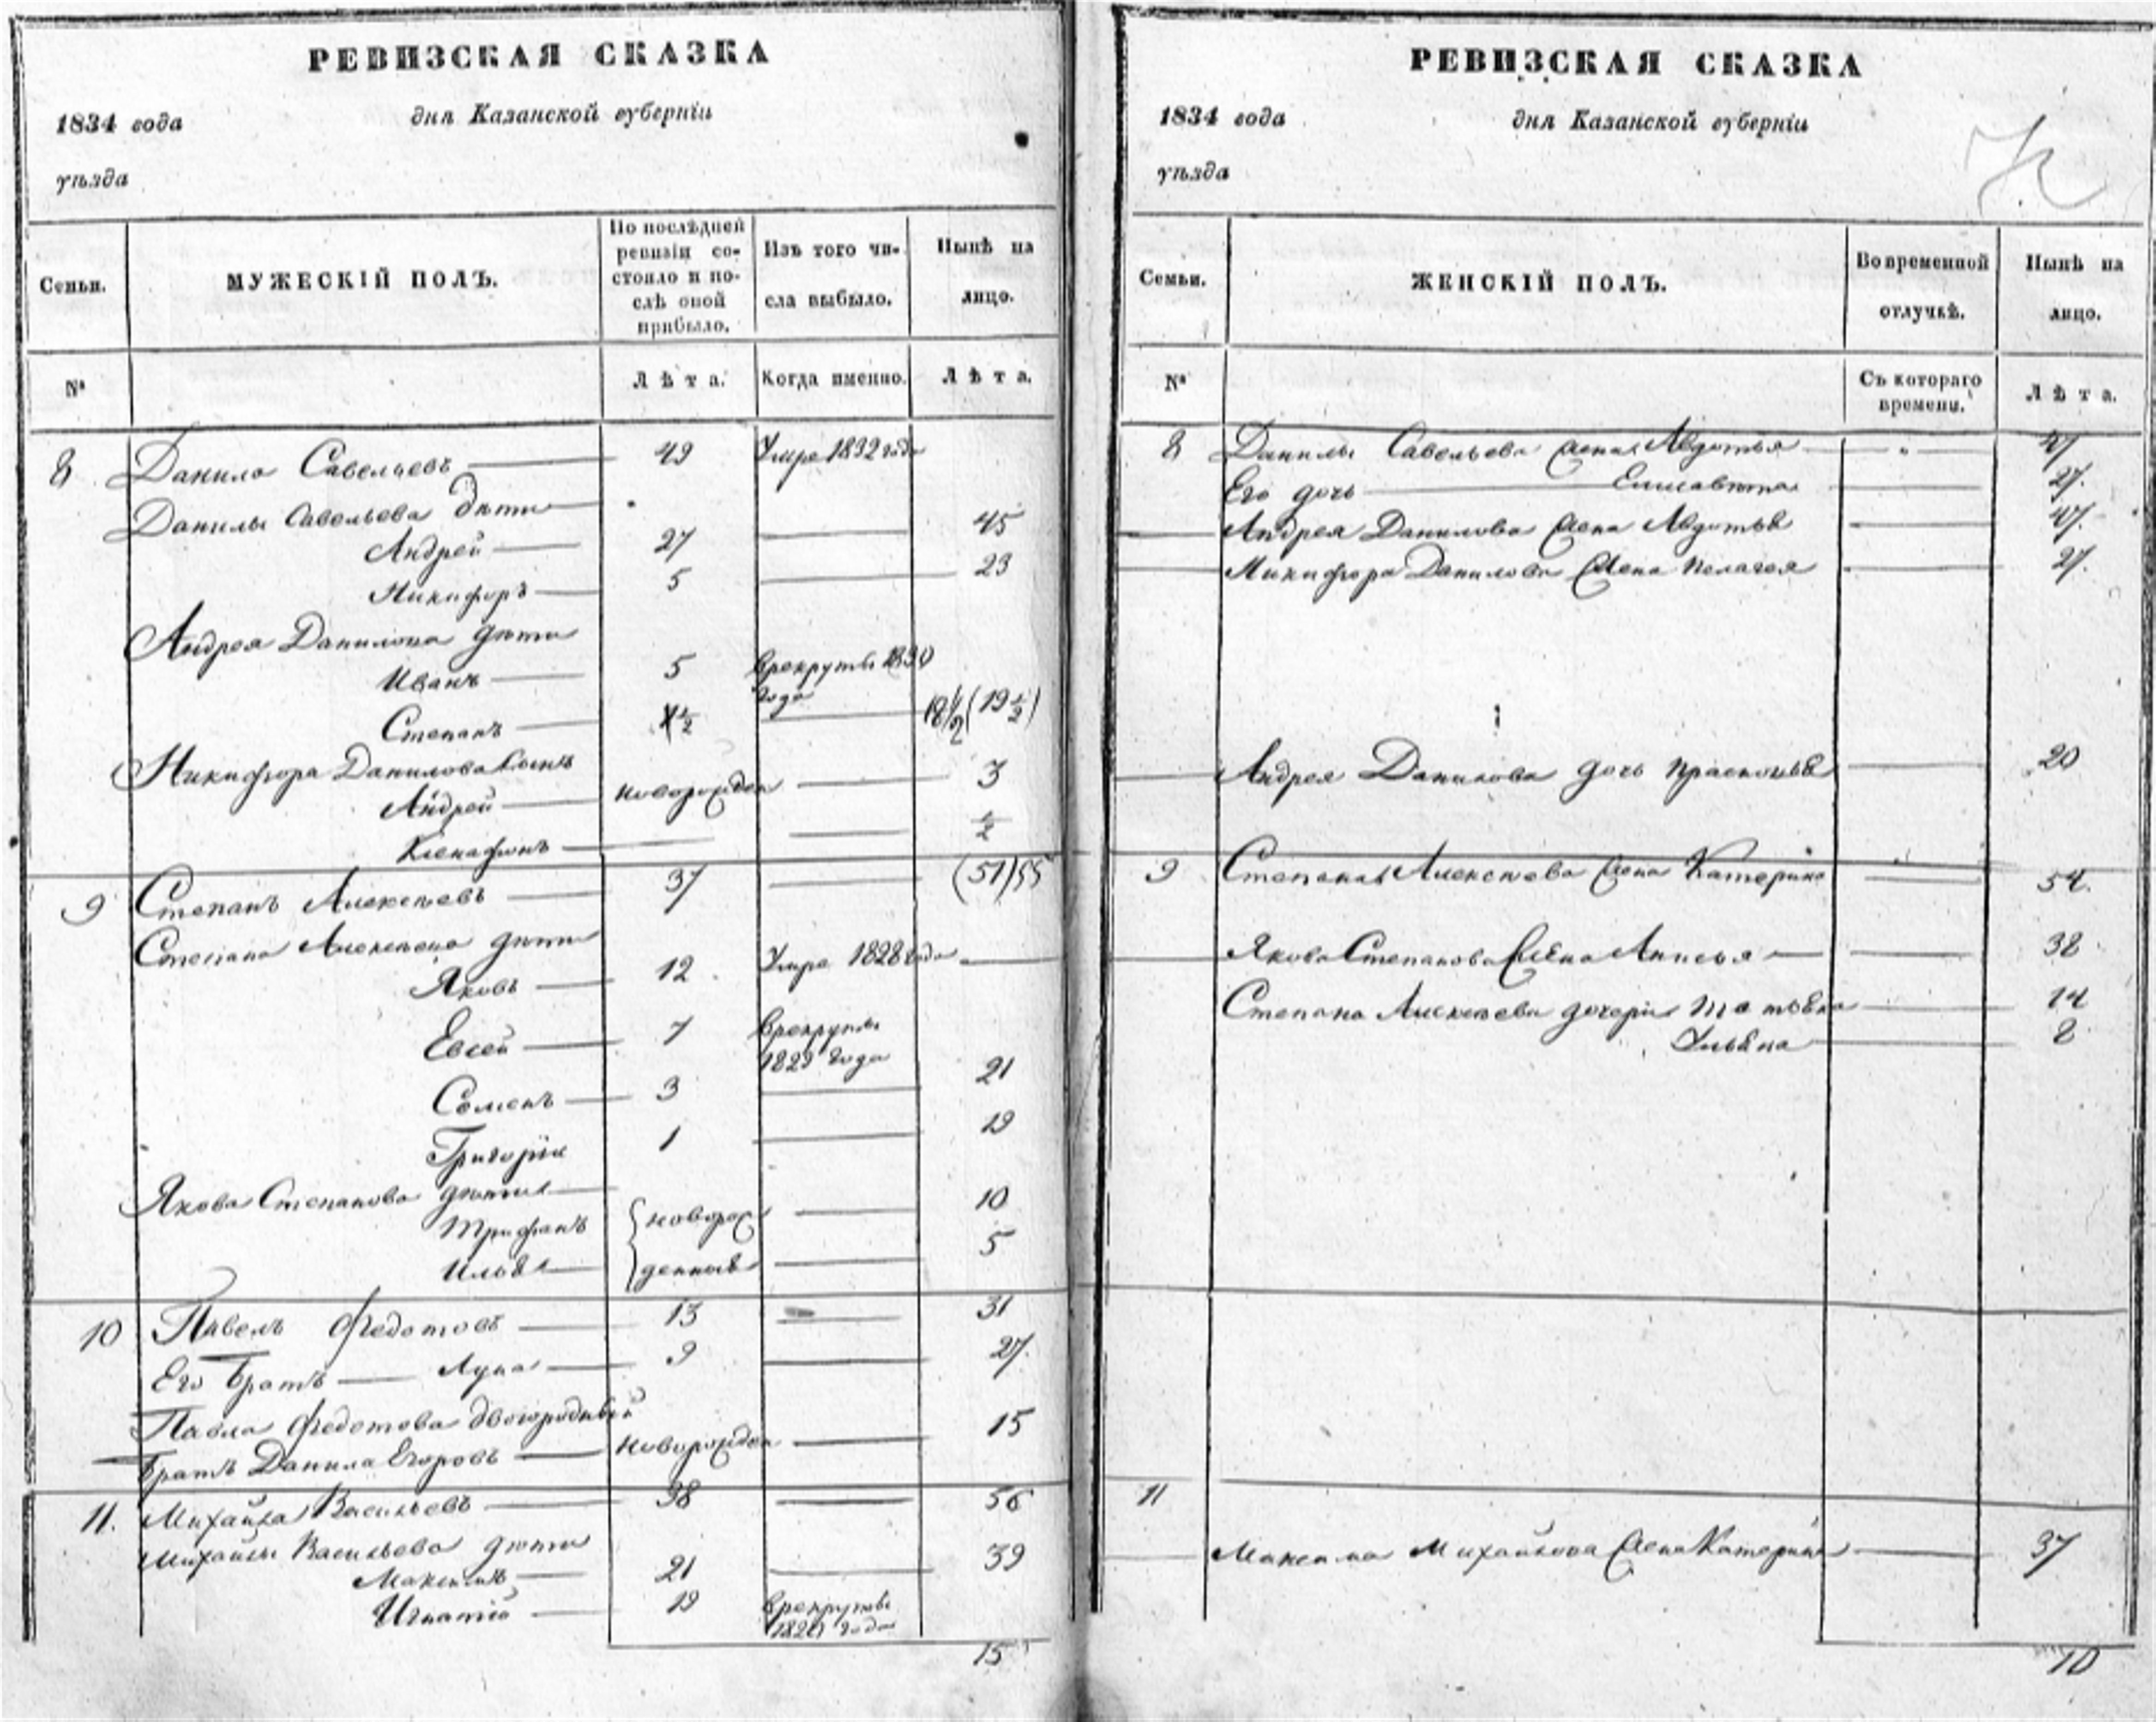 РЕВИЗСКАЯ СКАЗКА
1834 года дня Казанской губерніи
уѣзда
Семьи. МУЖЕСКІЙ ПОЛЪ. По послѣдней ревизіи состояло и послѣ оной прибыло. Изъ того числа выбыло. Нынѣ на лицо.
№ Лѣта. Когда именно. Лѣта.
8 Данило Савельевъ 49 Умре 1832 года
Данилы Савельева дѣти
Андрей 27 45
Никифоръ 5 23
Андрея Данилова дѣти
Иванъ 5 Врекруты 1830 года
Степанъ 1½ 18½ (19½)
Никифора Данилова сынъ
Андрей новорожден 3
Ксенафонъ ½
9 Степанъ Алексѣевъ 37 (51) 55
Степана Алексѣева дѣти
Яковъ 12 Умре 1828 года
Евсей 7 Врекруты 1829 года
Семенъ 3 21
Григорій 1 19
Якова Степанова дѣти
Трифанъ новорож 10
Илья денные 5
10 Павелъ Федотовъ 13 31
Его Братъ Лука 9 27
Павла Федотова двоюродный
Братъ Данила Егоровъ новорожден 15
11. Михайла Васильевъ 38 56
Михайлы Васильева дѣти
Максимъ 21 39
Игнатій 19 Врекруты года
15
РЕВИЗСКАЯ СКАЗКА
1834 года дня Казанской губерніи
уѣзда
Семьи. ЖЕНСКІЙ ПОЛЪ. Во временной отлучкѣ. Нынѣ на лицо.
№ Съ котораго времени. Лѣта.
8 Данилы Савельева жена Авдотья
Его дочь Елисавета 27.
Андрея Данилова жена Авдотья 47.
Микифора Данилова жена Пелагея 27.
Андрея Данилова дочь Прасковья 20
9 Степана Алексѣева жена Катерина 54.
Якова Степанова жена Анисья 38
Степана Алексѣева дочери Татьяна 14
Ульяна 8
11
Максима Михайлова жена Катерина 37
10